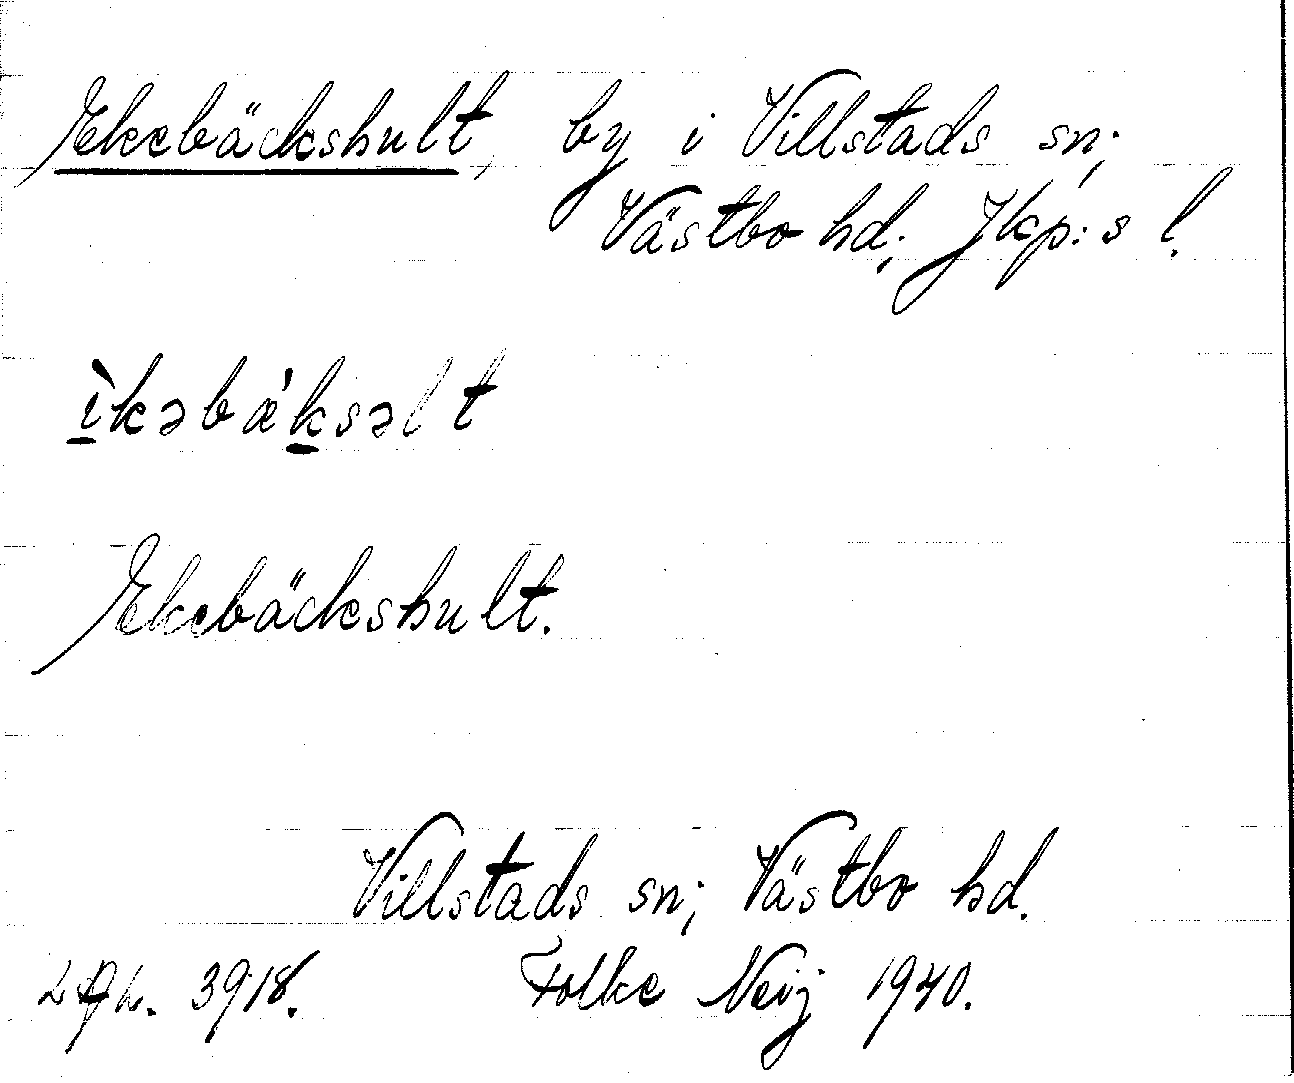 Ekebäckshult, by i Villstads sn;
Västbo hd; Jkp:s l.
ìkəbǽksəlt
Ekebäckshult.
Villstads sn; Västbo hd.
3918. Folke Neij 1940.